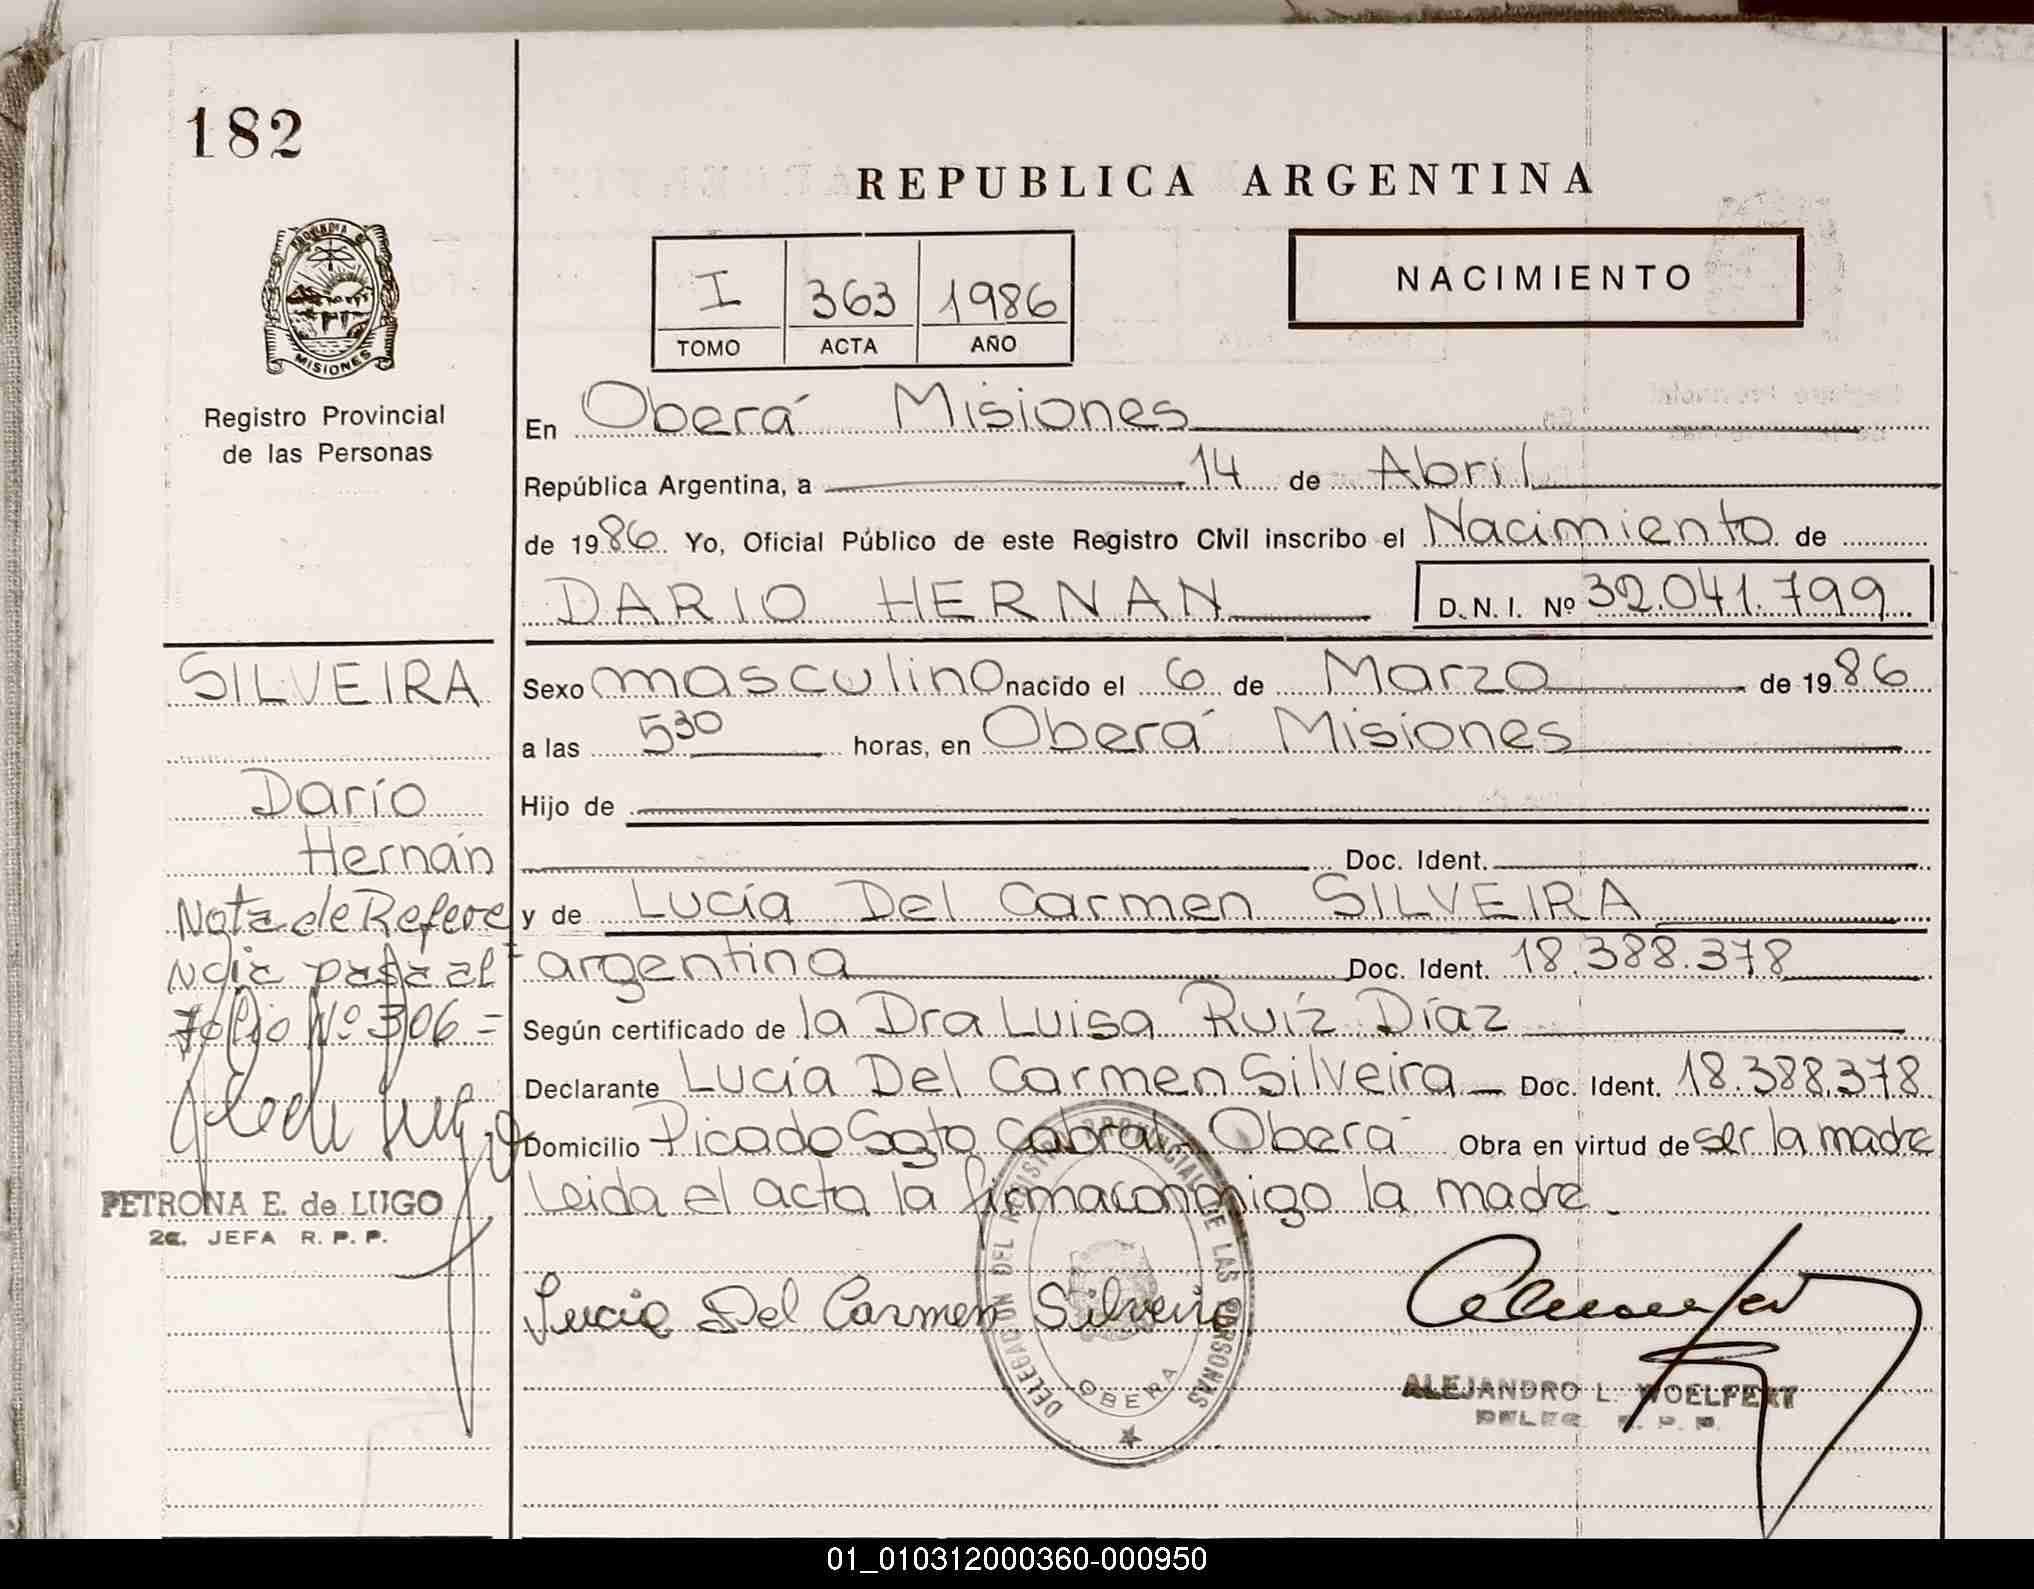 182
REPUBLICA ARGENTINA
PROVINCIA DE
MISIONES
I 363 1986
TOMO ACTA AÑO
NACIMIENTO
Registro Provincial
de las Personas
En Oberá Misiones
República Argentina, a 14 de Abril
de 1986 Yo, Oficial Público de este Registro Civil inscribo el Nacimiento de
DARIO HERNAN D.N.I. Nº 32.041.799
SILVEIRA
Darío
Hernán
Nota de Refere
ncia pasa al
Folio Nº 306 =
PETRONA E. de LUGO
2a. JEFA R. P. P.
Sexo masculino nacido el 6 de Marzo de 1986
a las 5 30 horas, en Oberá Misiones
Hijo de
Doc. Ident.
y de Lucía Del Carmen SILVEIRA
argentina Doc. Ident. 18.388.378
Según certificado de la Dra Luisa Ruíz Díaz
Declarante Lucía Del Carmen Silveira Doc. Ident. 18.388.378
Domicilio Picada Sgto Cabral Oberá Obra en virtud de ser la madre
Leida el acta la firma conmigo la madre.
Lucia Del Carmen Silveira
DELEGACION DEL REGISTRO PROVINCIAL DE LAS PERSONAS
OBERA
ALEJANDRO L. WOELFERT
DELEG. R. P. P.
01_010312000360-000950